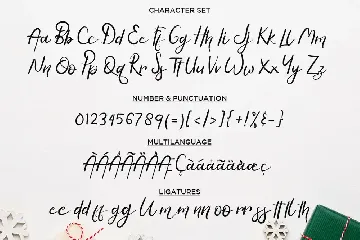 CHARACTER SET
Aa Bb Cc Dd Ee Ff Gg Hh Ii Jj Kk Ll Mm
Nn Oo Pp Qq Rr Ss Tt Uu Vv Ww Xx Yy Zz
NUMBER & PUNCTUATION
0123456789(=){</>}[+!%&-}
MULTILANGUAGE
ÀÁÂÃÄÅÆÇàáâãäåæç
LIGATURES
ee dd ff gg ll mm nn oo rr ss tt tl th